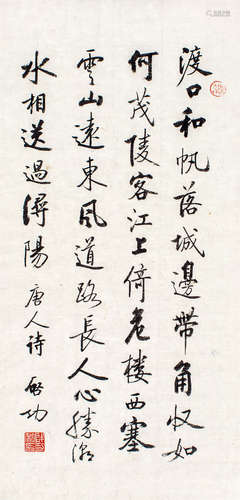 渡口和帆落城邊帶角收如
何茂陵客江上倚危樓西塞
雲山遠東風道路長人心勝潮
水相送過潯陽 唐人詩 啓功